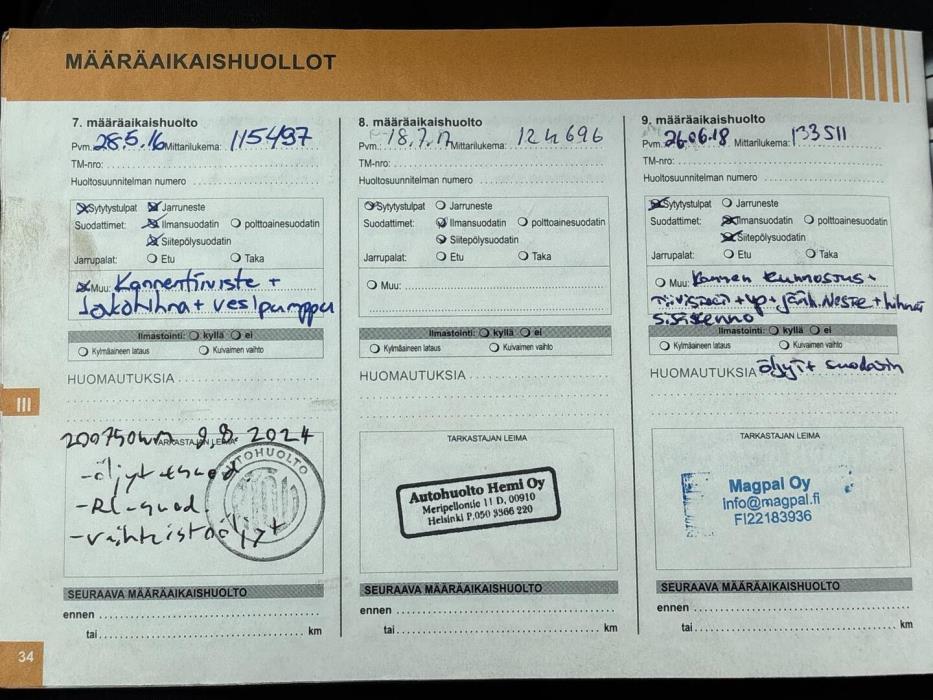 MÄÄRÄAIKAISHUOLLOT
7. määräaikaishuolto
Pvm. 28.5.16 Mittarilukema: 115497
TM-nro:
Huoltosuunnitelman numero
Sytytystulpat Jarruneste
Suodattimet: Ilmansuodatin polttoainesuodatin
Siitepölysuodatin
Jarrupalat: Etu Taka
Muu: Kannentiiviste +
Jakohihna + vesipumppu
Ilmastointi: kyllä ei
Kylmäaineen lataus Kuivaimen vaihto
HUOMAUTUKSIA
200750km 9.8. 2024
TARKASTAJAN LEIMA
AUTOHUOLTO
-öljyt + suod
-RL-suod.
-vaihteistoöljyt
SEURAAVA MÄÄRÄAIKAISHUOLTO
ennen
tai km
8. määräaikaishuolto
Pvm. 18.7.17 Mittarilukema: 124696
TM-nro:
Huoltosuunnitelman numero
Sytytystulpat Jarruneste
Suodattimet: Ilmansuodatin polttoainesuodatin
Siitepölysuodatin
Jarrupalat: Etu Taka
Muu:
Ilmastointi: kyllä ei
Kylmäaineen lataus Kuivaimen vaihto
HUOMAUTUKSIA
TARKASTAJAN LEIMA
Autohuolto Hemi Oy
Meripellontie 11 D, 00910
Helsinki P.050 3366 220
SEURAAVA MÄÄRÄAIKAISHUOLTO
ennen
tai km
9. määräaikaishuolto
Pvm. 26.06.18 Mittarilukema: 133511
TM-nro:
Huoltosuunnitelman numero
Sytytystulpat Jarruneste
Suodattimet: Ilmansuodatin polttoainesuodatin
Siitepölysuodatin
Jarrupalat: Etu Taka
Muu: Kannen kunnostus +
+ vp + jääh. Neste + hihna
Sisäkenno
Ilmastointi: kyllä ei
Kylmäaineen lataus Kuivaimen vaihto
HUOMAUTUKSIA öljyt + suodatin
TARKASTAJAN LEIMA
Magpal Oy
info@magpal.fi
FI22183936
SEURAAVA MÄÄRÄAIKAISHUOLTO
ennen
tai km
III
34